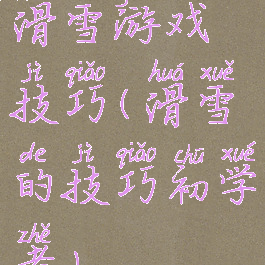 滑雪游戏
jì qiǎo huá xuě
技巧(滑雪
de jì qiǎo chū xué
的技巧初学
zhě
者)